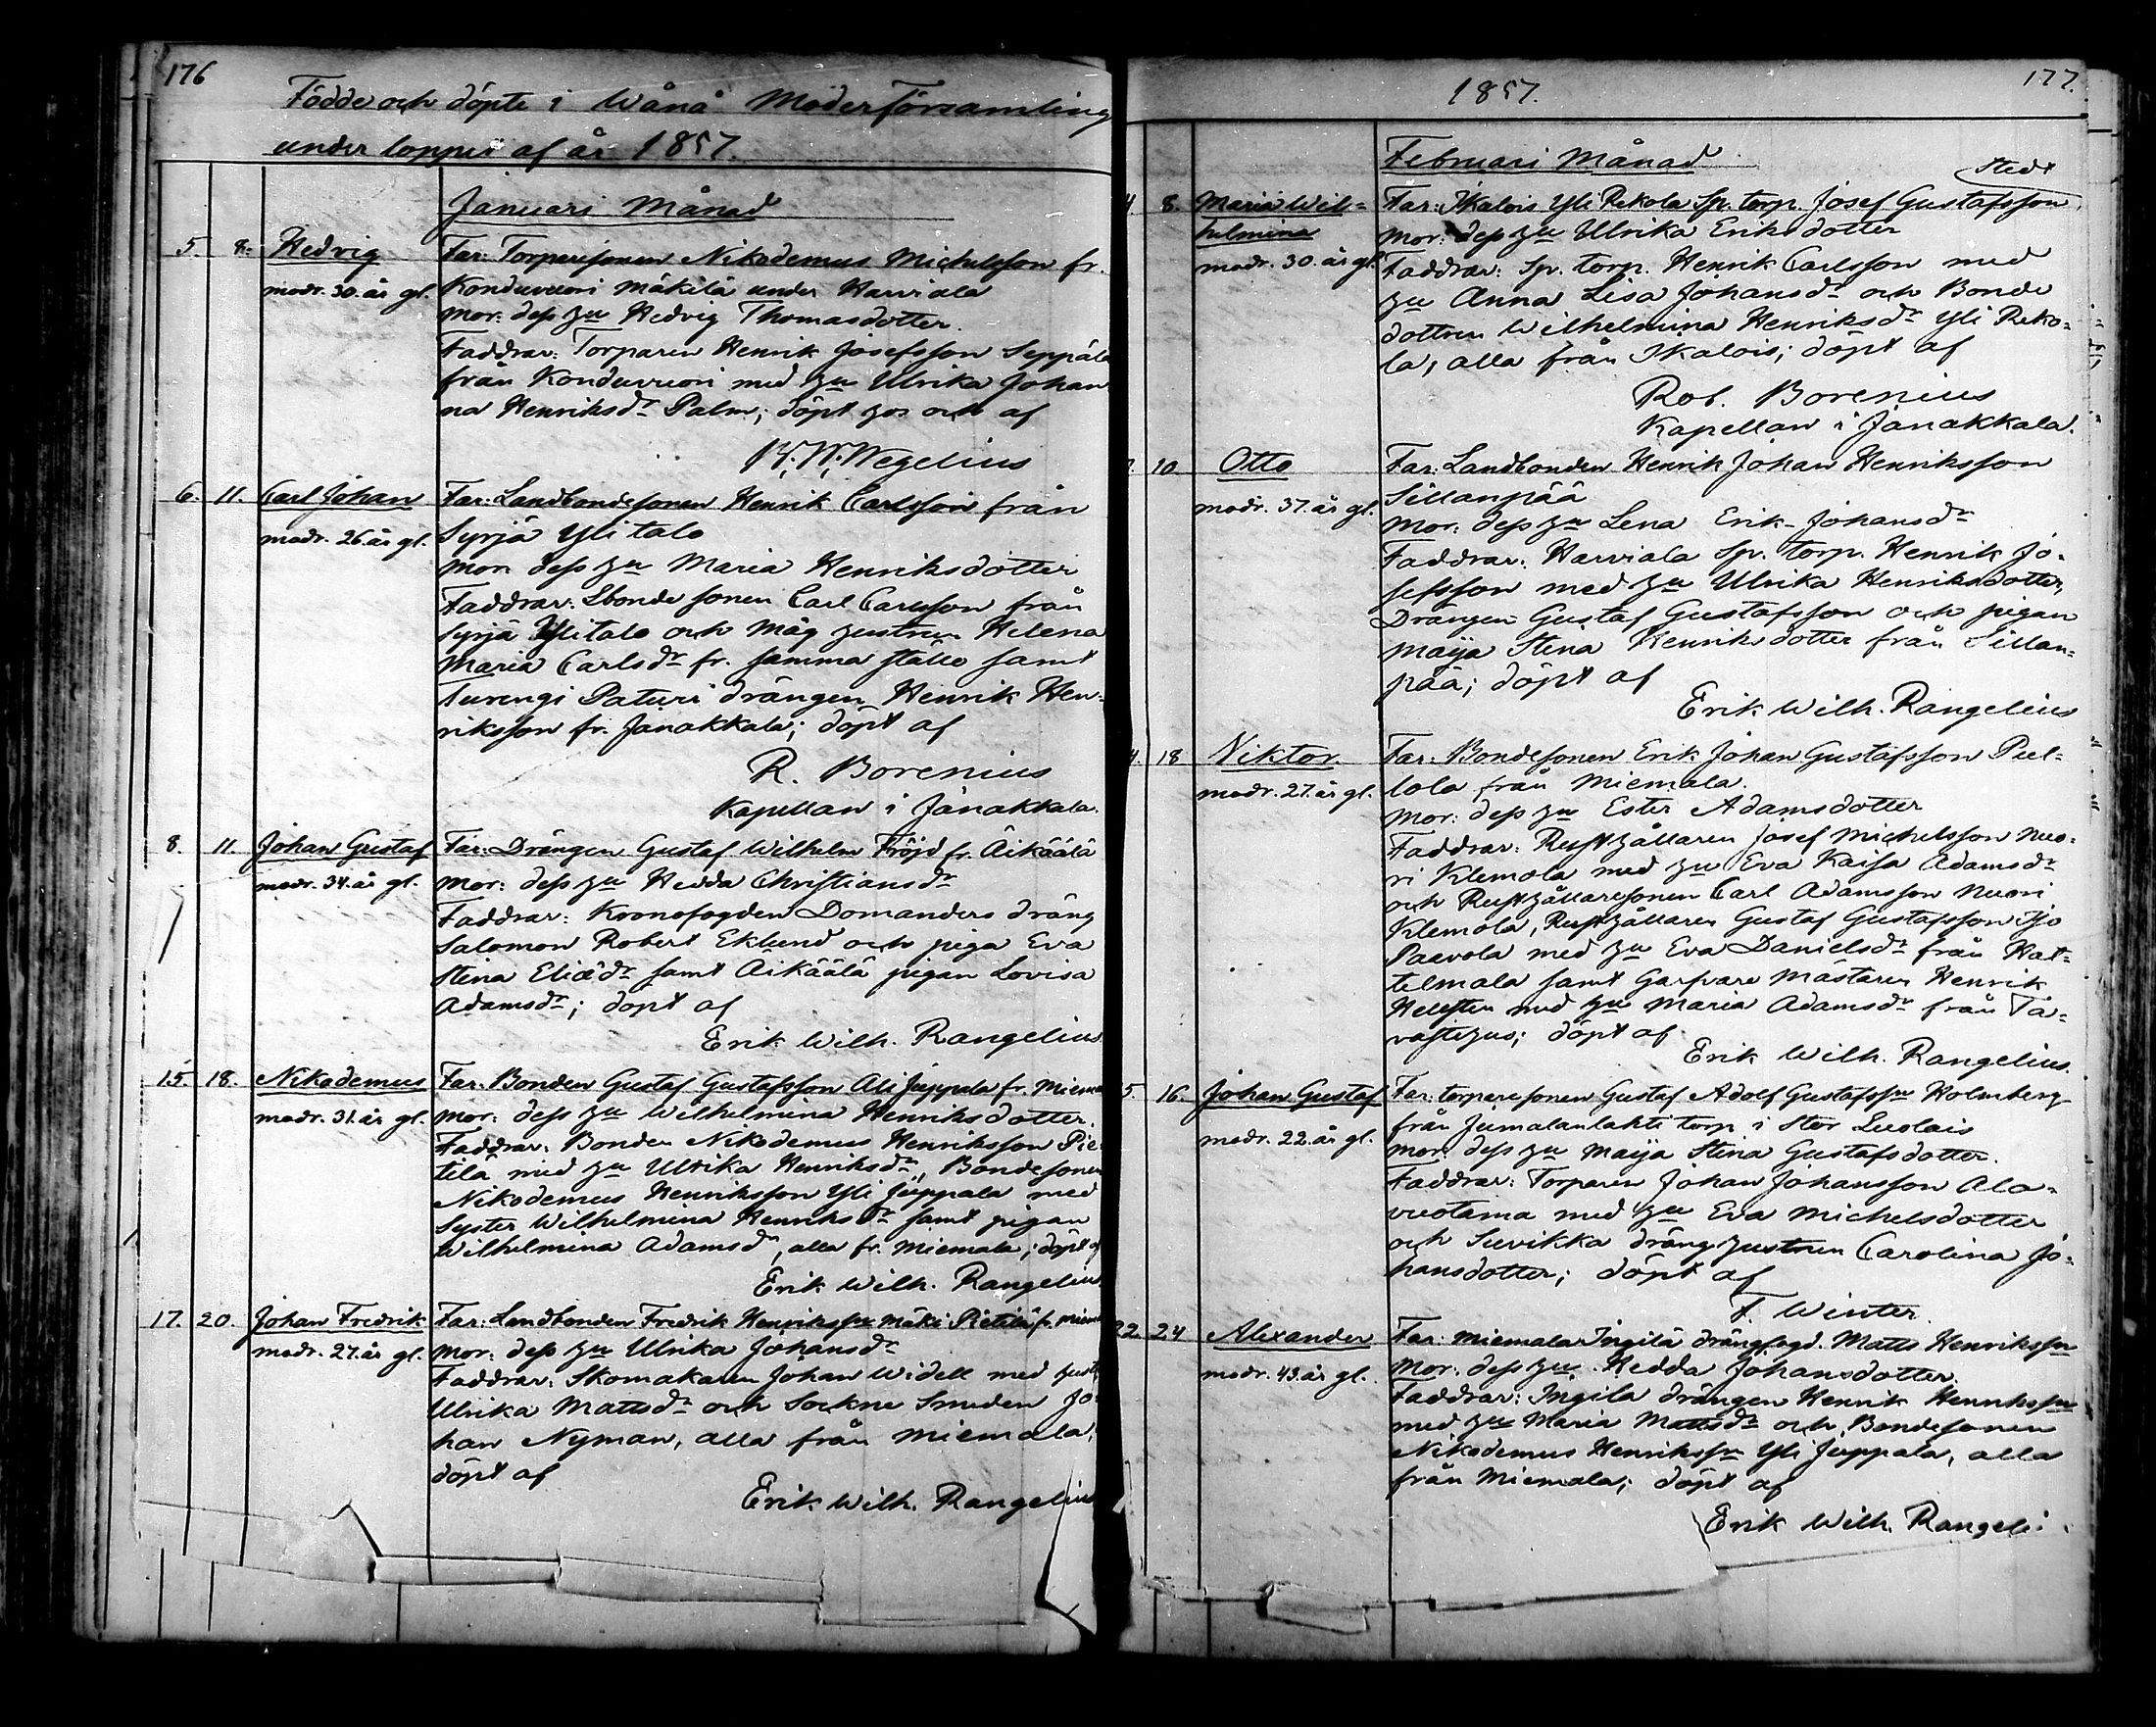 176
Födde och döpte i Wånå Moderförsamling
under loppet af år 1857.
Januari Månad
5. 8. Hedvig Far: Torparesonen Nikodemus Michelsson fr.
modr. 30. år gl. Konduvuori Mäkilä under Harviala
Mor: dess hu Hedvig Thomasdotter.
Faddrar: Torparen Henrik Josefsson Seppälä
från Konduvuori med hu Ulrika Johan
na Henriksdr Palm; döpt hos och af
Wegelius
6. 11. Carl Johan Far: Landbondesonen Henrik Carlsson från
modr. 26. år gl. Syrjä Ylitalo
Mor: dess hu Maria Henriksdotter
Faddrar: Lbonde sonen Carl Carlsson från
Syrjä Ylitalo och Måg hustrun Helena
Maria Carlsdr fr. samma ställe samt
Turengi Paturi drängen Henrik Hen-
riksson fr. Janakkala; döpt af
R. Borenius
Kapellan i Janakkala.
8. 11. Johan Gustaf Far: Drängen Gustaf Wilhelm Fröjd fr. Äikäälä
modr. 34. år gl. Mor: dess hu Hedda Christiansdr
Faddrar: Kronofogden Domanders dräng
Salomon Robert Eklund och piga Eva
Stina Eliædr samt Äikäälä pigan Lovisa
Adamsdr; döpt af
Erik Wilh. Rangelius.
15. 18. Nikodemus Far: Bonden Gustaf Gustafsson Ali Juppala fr. Miema
modr. 31. år gl. Mor: dess hu Wilhelmina Henriksdotter.
Faddrar: Bonden Nikodemus Henriksson Pie
tilä med hu Ulrika Henriksdr, Bondesonen
Nikodemus Henriksson Yli Juppala med
Syster Wilhelmina Henriksdr samt pigan
Wilhelmina Adamsdr, alla fr. Miemala; döpt af
Erik Wilh. Rangelius
17. 20. Johan Fredrik Far: Landbonden Fredrik Henriksson Mäki Pietilä fr. Miem
modr. 27. år gl. Mor: dess hu Ulrika Johansdr
Faddrar: Skomakaren Johan Widell med hust
Ulrika Mattsdr och Sockne Smeden Jo
han Nyman, alla från Miemala;
döpt af
Erik Wilh. Rangelius
1857.
177.
Februari Månad
Stedt
4. 8. Maria Wil- Far: Ikalois Yli Rekola Sp. torp. Josef Gustafsson
helmina Mor: dess hu Ulrika Eriksdotter
modr. 30. år gl. Faddrar: Sp. torp. Henrik Carlsson med
hu Anna Lisa Johansdr och Bonde
dottren Wilhelmina Henriksdr Yli Reko-
la, alla från Ikalois; döpt af
Rob. Borenius
Kapellan i Janakkala.
10 Otto Far: Landbonden Henrik Johan Henriksson
modr. 37. år gl. Sillanpää
Mor: dess hu Lena Erik-Johansdr
Faddrar: Harviala Sp. torp. Henrik Jo-
sefsson med hu Ulrika Henriksdotter,
Drängen Gustaf Gustafsson och pigan
Maija Stina Henriksdotter från Sillan-
pää; döpt af
Erik Wilh. Rangelius
4. 18 Viktor. Far: Bondesonen Erik Johan Gustafsson Pul-
modr. 27. år gl. lola från Miemala.
Mor: dess hu Ester Adamsdotter
Faddrar: Rusthållaren Josef Michelsson Nuo-
ri Klemola med hu Eva Kaisa Adamsdr
och Rusthållaresonen Carl Adamsson Nuori
Klemola, Rusthållaren Gustaf Gustafsson Iso
Paavola med hu Eva Danielsdr från Hat-
telmala samt Garfvare Mästaren Henrik
Hellsten med hu Maria Adamsdr från Ta-
vastehus; döpt af
Erik Wilh. Rangelius.
5. 16. Johan Gustaf Far: torparesonen Gustaf Adolf Gustafsson Holmberg
modr. 22. år gl. från Jumalanlahti torp i Stor Luolais
Mor: dess hu Maija Stina Gustafsdotter.
Faddrar: Torparen Johan Johansson Ala-
vuotama med hu Eva Michelsdotter
och Suvikka dräng hustrun Carolina Jo-
hansdotter; döpt af
F. Winter.
22 24 Alexander Far: Miemala Ingilä drängfogd. Matts Henriksson
modr. 43. år gl. Mor: dess hu Hedda Johansdotter.
Faddrar: Ingila drängen Henrik Henriksson
med hu Maria Mattsdr och Bondesonen
Nikodemus Henriksson Yli Juppala, alla
från Miemala; döpt af
Erik Wilh. Rangeli